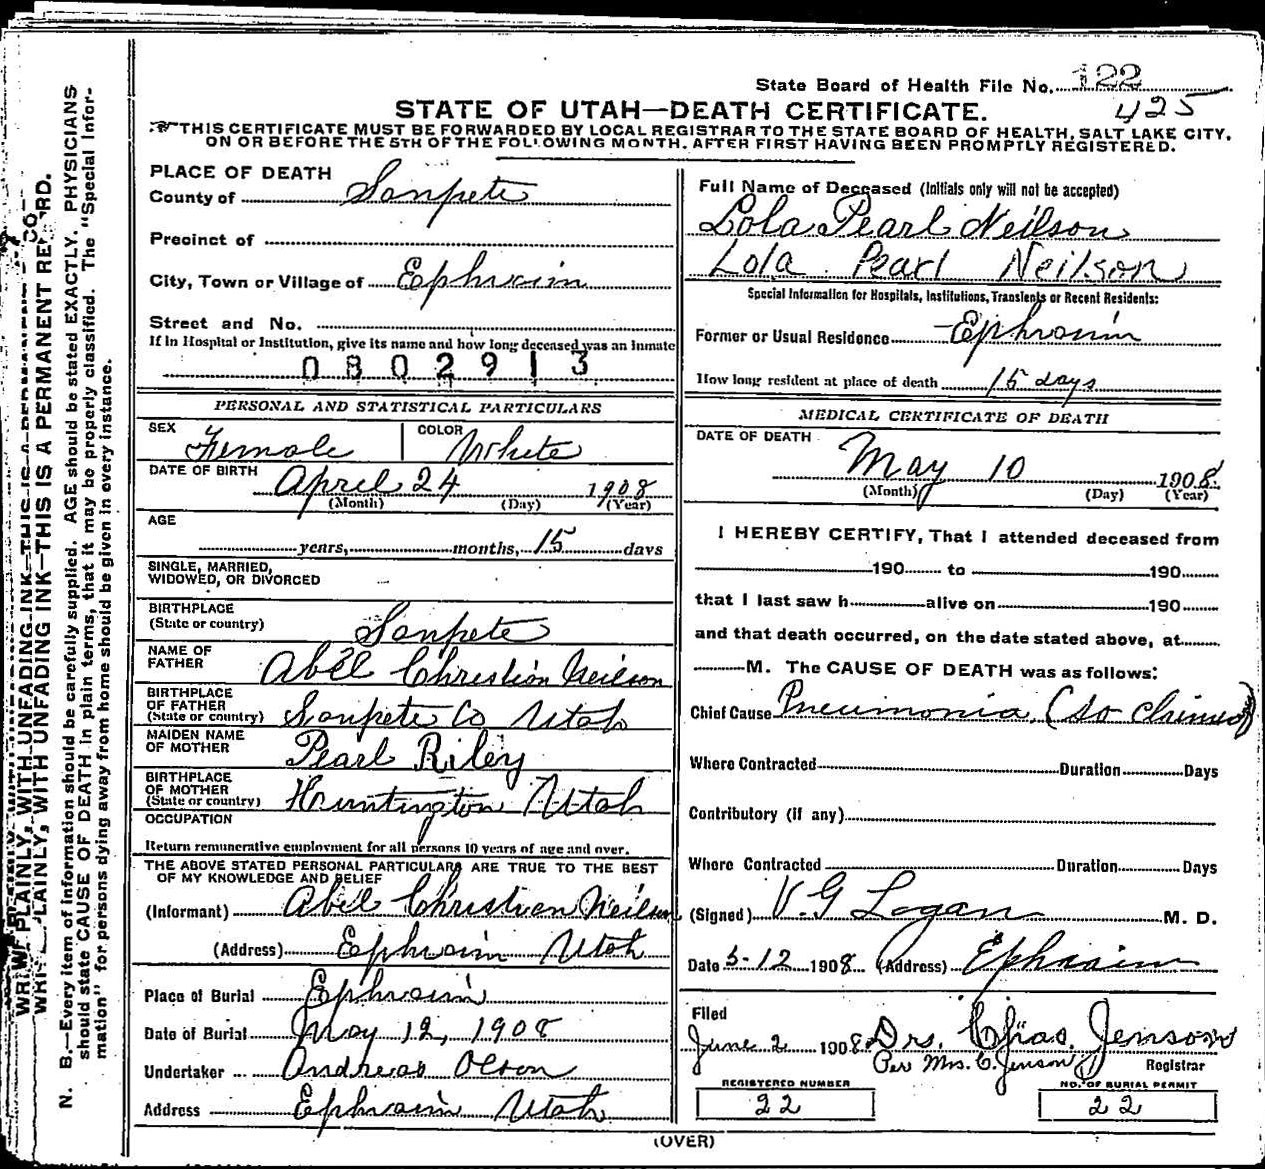 State Board of Health File No. 122
425
STATE OF UTAH—DEATH CERTIFICATE.
THIS CERTIFICATE MUST BE FORWARDED BY LOCAL REGISTRAR TO THE STATE BOARD OF HEALTH, SALT LAKE CITY,
ON OR BEFORE THE 5TH OF THE FOLLOWING MONTH, AFTER FIRST HAVING BEEN PROMPTLY REGISTERED.
PLACE OF DEATH
County of Sanpete
Precinct of
City, Town or Village of Ephraim
Street and No.
If in Hospital or Institution, give its name and how long deceased was an inmate
0802913
PERSONAL AND STATISTICAL PARTICULARS
SEX Female COLOR White
DATE OF BIRTH April 24 1908
(Month) (Day) (Year)
AGE
years, months, 15 days
SINGLE, MARRIED,
WIDOWED, OR DIVORCED
BIRTHPLACE
(State or country) Sanpete
NAME OF
FATHER Abel Christian Neilson
BIRTHPLACE
OF FATHER
(State or country) Sanpete Co Utah
MAIDEN NAME
OF MOTHER Pearl Riley
BIRTHPLACE
OF MOTHER
(State or country) Huntington Utah
OCCUPATION
Return remunerative employment for all persons 10 years of age and over.
THE ABOVE STATED PERSONAL PARTICULARS ARE TRUE TO THE BEST
OF MY KNOWLEDGE AND BELIEF
(Informant) Abel Christian Neilson
(Address) Ephraim Utah
Place of Burial Ephraim
Date of Burial May 12, 1908
Undertaker Andreas Olson
Address Ephraim Utah
Full Name of Deceased (Initials only will not be accepted)
Lola Pearl Neilson
Lola Pearl Neilson
Special Information for Hospitals, Institutions, Transients or Recent Residents:
Former or Usual Residence Ephraim
How long resident at place of death 15 days
MEDICAL CERTIFICATE OF DEATH
DATE OF DEATH
May 10 1908
(Month) (Day) (Year)
I HEREBY CERTIFY, That I attended deceased from
190 to 190
that I last saw h alive on 190
and that death occurred, on the date stated above, at
M. The CAUSE OF DEATH was as follows:
Chief Cause Pneumonia (so claimed)
Where Contracted Duration Days
Contributory (if any)
Where Contracted Duration Days
(Signed) V. G Logan M. D.
Date 5-12 1908 (Address) Ephraim
Filed
June 2 1908 Drs. Chas. Jenson
Per Mrs. C. Jenson Registrar
REGISTERED NUMBER NO. OF BURIAL PERMIT
22 22
(OVER)
WRITE PLAINLY, WITH UNFADING INK—THIS IS A PERMANENT RECORD.
N. B.—Every item of information should be carefully supplied. AGE should be stated EXACTLY. PHYSICIANS
should state CAUSE OF DEATH in plain terms, that it may be properly classified. The "Special Infor-
mation" for persons dying away from home should be given in every instance.